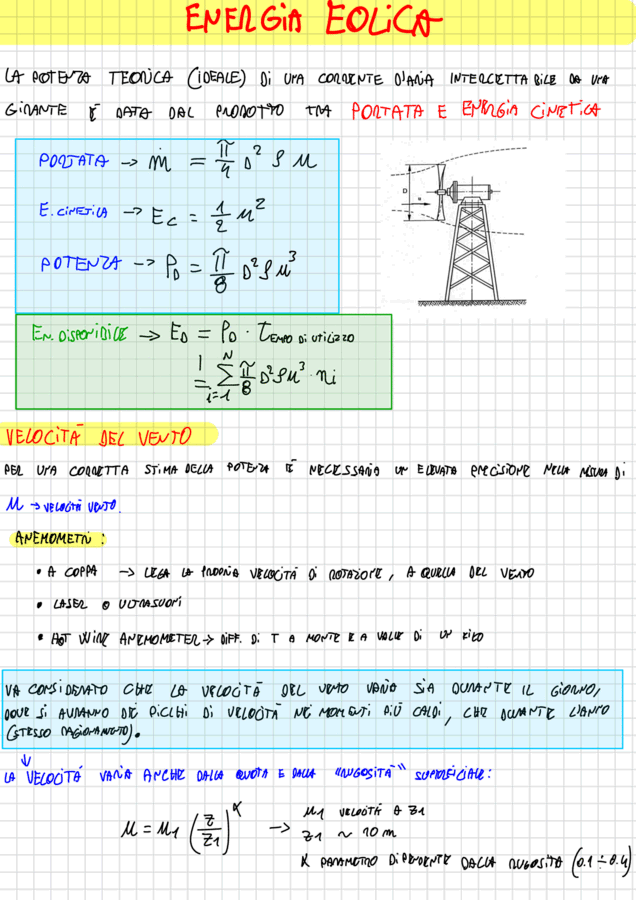 ENERGIA EOLICA
LA POTENZA TEORICA (IDEALE) DI UNA CORRENTE D'ARIA INTERCETTABILE DA UNA
GIRANTE È DATA DAL PRODOTTO TRA PORTATA E ENERGIA CINETICA
PORTATA → ṁ = π/4 D² ρ u
E. CINETICA → Ec = 1/2 u²
POTENZA → PD = π/8 D² ρ u³
D
u
EN. DISPONIBILE → ED = PD · tTEMPO DI UTILIZZO
= Σ i=1 N π/8 D² ρ u³ · ni
VELOCITÀ DEL VENTO
PER UNA CORRETTA STIMA DELLA POTENZA È NECESSARIO UN ELEVATA PRECISIONE NELLA MISURA DI
u → VELOCITÀ VENTO.
ANEMOMETRI :
• A COPPA → LEGA LA PROPRIA VELOCITÀ DI ROTAZIONE, A QUELLA DEL VENTO
• LASER O ULTRASUONI
• HOT WIRE ANEMOMETER → DIFF. DI T A MONTE E A VALLE DI UN FILO
VA CONSIDERATO CHE LA VELOCITÀ DEL VENTO VARIA SIA DURANTE IL GIORNO,
DOVE SI AVRANNO DEI PICCHI DI VELOCITÀ NEI MOMENTI PIÙ CALDI, CHE DURANTE L'ANNO
(STESSO RAGIONAMENTO).
↓
LA VELOCITÀ VARIA ANCHE DALLA QUOTA E DALLA "RUGOSITÀ" SUPERFICIALE:
u = u1 (z/z1)^α → u1 VELOCITÀ A z1
z1 ~ 10 m
α PARAMETRO DIPENDENTE DALLA RUGOSITÀ (0.1 ÷ 0.4)